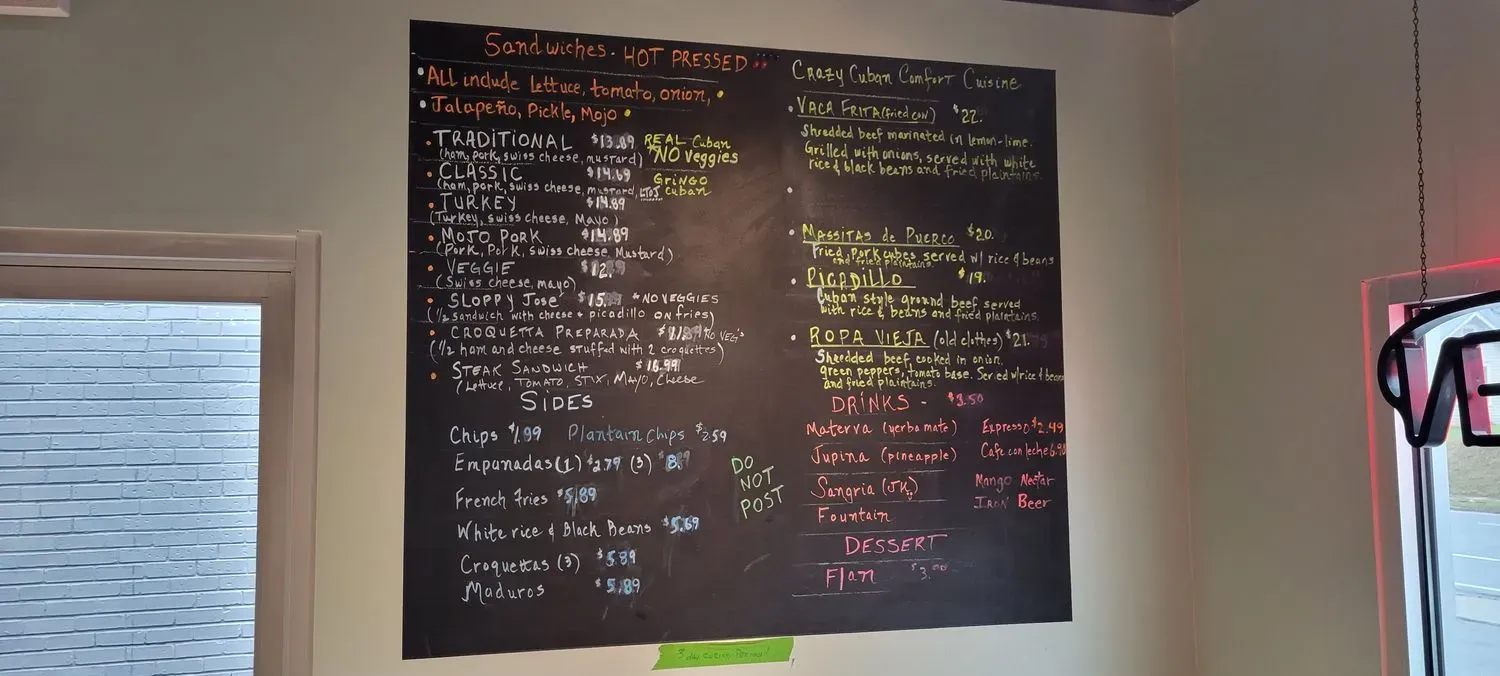 Sandwiches - HOT PRESSED
• All include lettuce, tomato, onion, •
• Jalapeño, Pickle, Mojo •
• TRADITIONAL $13.89 REAL Cuban
(ham, pork, swiss cheese, mustard) *NO Veggies
• CLASSIC $14.69 GRINGO
(ham, pork, swiss cheese, mustard, LTOJ Cuban
• TURKEY $14.89
(Turkey, swiss cheese, Mayo)
• MOJO PORK $14.89
(Pork, Pork, Swiss Cheese, Mustard)
• VEGGIE $12.
(Swiss cheese, mayo)
• SLOPPY Jose' $15. *NO VEGGIES
(1/2 sandwich with cheese + picadillo on fries)
• CROQUETTA PREPARADA NO VEG'S
(1/2 ham and cheese stuffed with 2 croquettes)
• STEAK SANDWICH $16.99
(Lettuce, TOMATO, STIX, MAYO, Cheese
SIDES
Chips $1.99 Plantain Chips $2.59
Empanadas (1) $2.79 (3)
French fries $5.89
White rice & Black Beans $5.69
Croquettas (3) $5.89
Maduros $5.89
DO
NOT
POST
Crazy Cuban Comfort Cuisine
• VACA FRITA (fried cow) $22.
Shredded beef marinated in lemon-lime.
Grilled with onions, served with white
rice & black beans and fried plaintains.
• MASSITAS de PUERCO $20.
Fried Pork cubes served w/ rice & beans
and fried plaintains.
• PICADILLO $19.
Cuban style ground beef served
with rice & beans and fried plaintains.
• ROPA VIEJA (old clothes) $21.
Shredded beef, cooked in onion.
green peppers, tomato base. Served w/rice & beans
and fried plaintains.
DRINKS - $3.50
Materva (yerba mate) Expresso $2.49
Jupina (pineapple) Cafe con leche
Sangria (JK) Mango Nectar
Fountain IRON Beer
DESSERT
Flan $3.00
VE